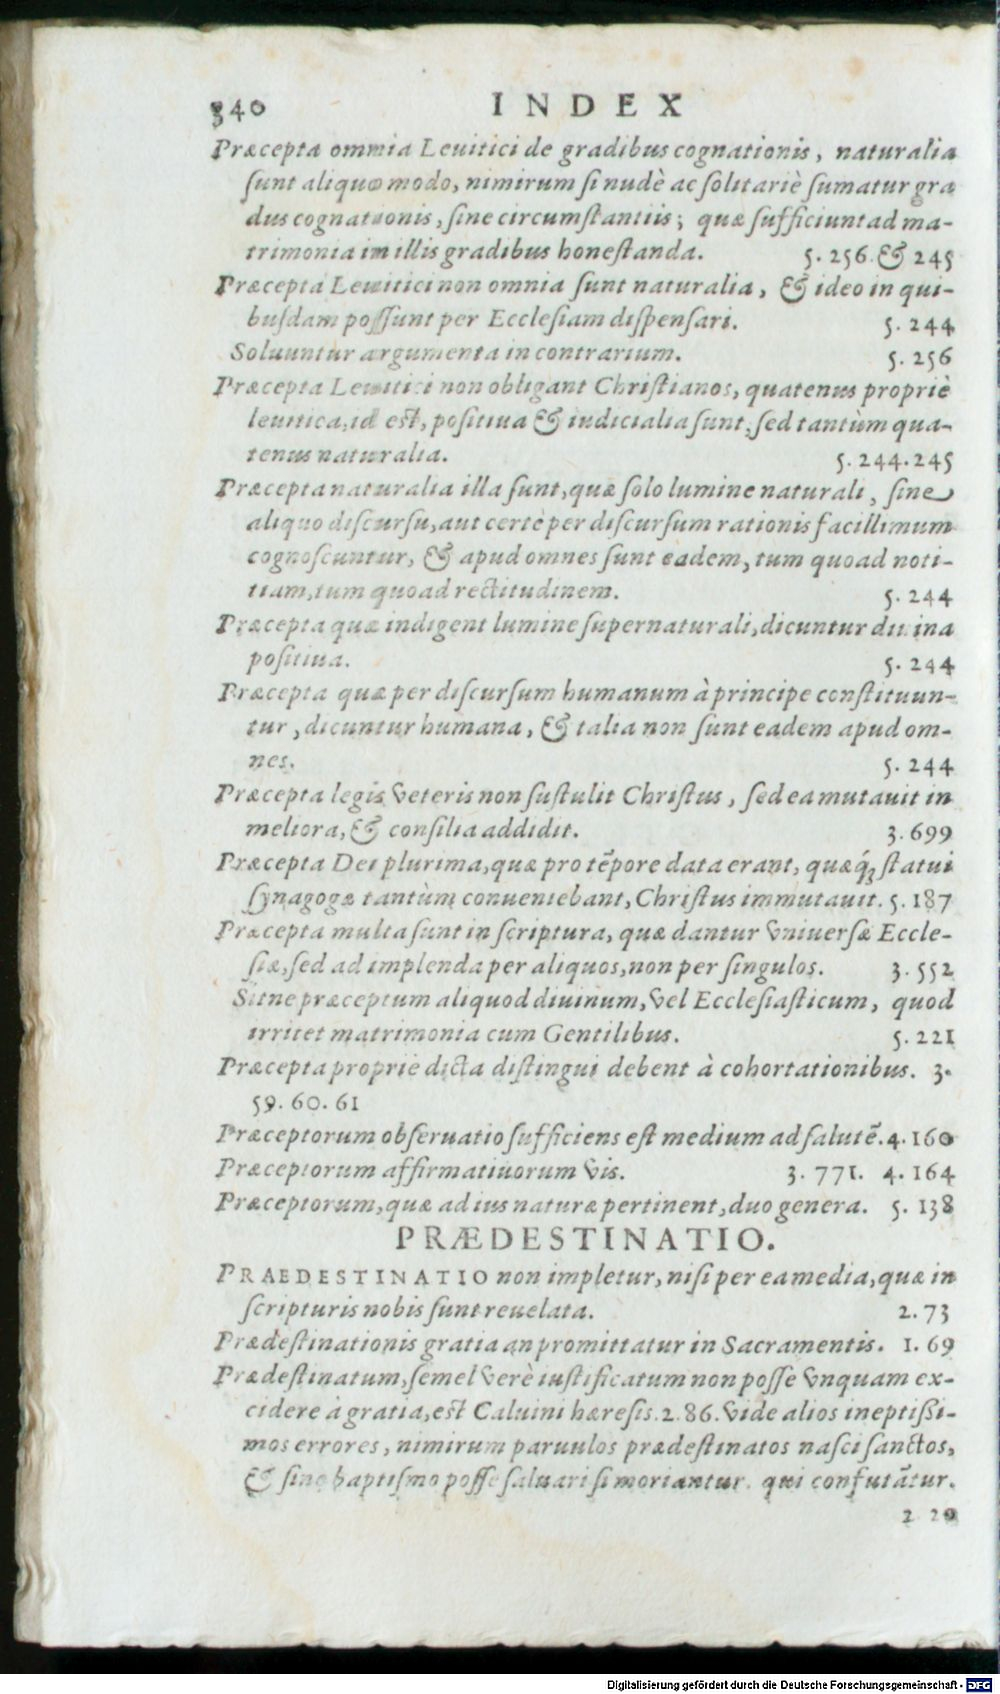 340 INDEX
Præcepta omnia Leuitici de gradibus cognationis, naturalia
ſunt aliquo modo, nimirum ſi nudè ac ſolitariè ſumatur gra
dus cognationis, ſine circumſtantiis; quæ ſufficiunt ad ma-
trimonia in illis gradibus honeſtanda. 5. 256. & 245
Præcepta Leuitici non omnia ſunt naturalia, & ideo in qui-
buſdam poſſunt per Eccleſiam diſpenſari. 5. 244
Soluuntur argumenta in contrarium. 5. 256
Præcepta Leuitici non obligant Chriſtianos, quatenus propriè
leuitica, id eſt, poſitiua & iudicialia ſunt, ſed tantùm qua-
tenus naturalia. 5. 244. 245
Præcepta naturalia illa ſunt, quæ ſolo lumine naturali, ſine
aliquo diſcurſu, aut certè per diſcurſum rationis facillimum
cognoſcuntur, & apud omnes ſunt eadem, tum quoad noti-
tiam, tum quoad rectitudinem. 5. 244
Præcepta quæ indigent lumine ſupernaturali, dicuntur diuina
poſitiua. 5. 244
Præcepta quæ per diſcurſum humanum à principe conſtituun-
tur, dicuntur humana, & talia non ſunt eadem apud om-
nes. 5. 244
Præcepta legis veteris non ſuſtulit Chriſtus, ſed ea mutauit in
meliora, & conſilia addidit. 3. 699
Præcepta Dei plurima, quæ pro tẽpore data erant, quæq́ꝫ ſtatui
ſynagogæ tantùm conueniebant, Chriſtus immutauit. 5. 187
Præcepta multa ſunt in ſcriptura, quæ dantur vniuerſæ Eccle-
ſiæ, ſed ad implenda per aliquos, non per ſingulos. 3. 552
Sitne præceptum aliquod diuinum, vel Eccleſiaſticum, quod
irritet matrimonia cum Gentilibus. 5. 221
Præcepta propriè dicta diſtingui debent à cohortationibus. 3.
59. 60. 61
Præceptorum obſeruatio ſufficiens eſt medium ad ſalutẽ. 4. 160
Præceptorum affirmatiuorum vis. 3. 771. 4. 164
Præceptorum, quæ ad ius naturæ pertinent, duo genera. 5. 138
PRÆDESTINATIO.
PRAEDESTINATIO non impletur, niſi per ea media, quæ in
ſcripturis nobis ſunt reuelata. 2. 73
Prædeſtinationis gratia an promittatur in Sacramentis. 1. 69
Prædeſtinatum, ſemel verè iuſtificatum non poſſe vnquam ex-
cidere à gratia, eſt Caluini hæreſis. 2. 86. Vide alios ineptiſſi-
mos errores, nimirum paruulos prædeſtinatos naſci ſanctos,
& ſine baptiſmo poſſe ſaluari ſi moriantur. qui confutãtur.
2 20
Digitalisierung gefördert durch die Deutsche Forschungsgemeinschaft - DFG